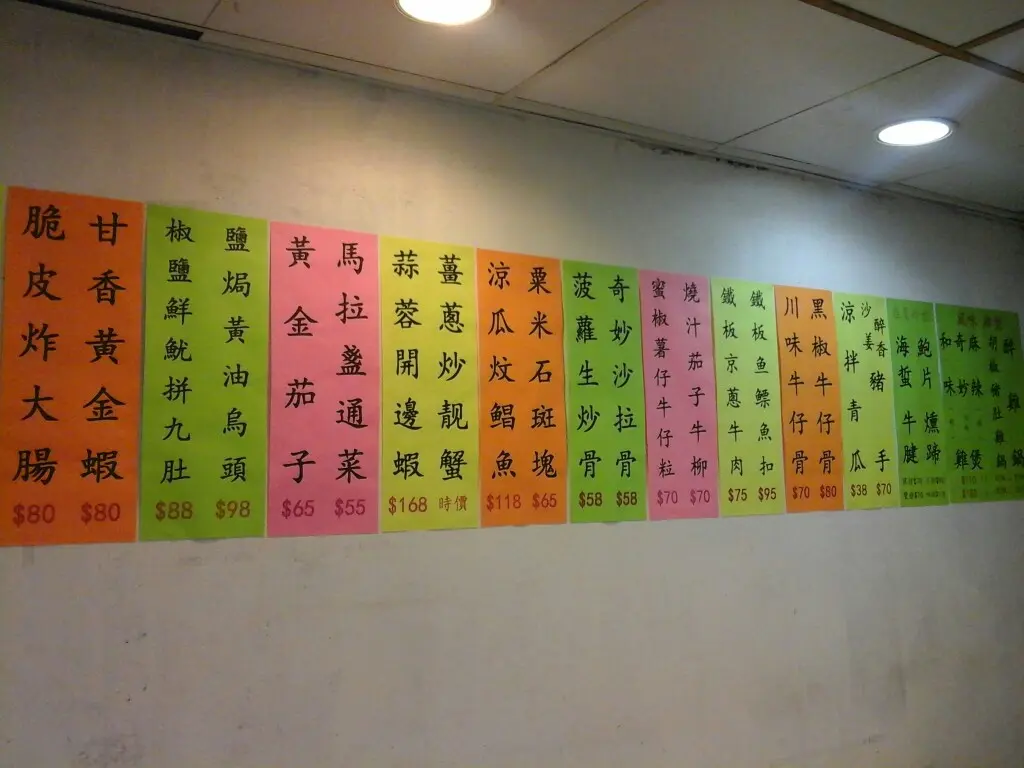 醉雞鍋
胡椒豬肚雞鍋
麻辣
奇妙
和味
雞煲
鮑片燻蹄
海蜇牛腱
醉香
沙姜
豬手
$70
涼拌青瓜
$38
黑椒牛仔骨
$80
川味牛仔骨
$70
鐵板魚鰾魚扣
$95
鐵板京蔥牛肉
$75
燒汁茄子牛柳
$70
蜜椒薯仔牛仔粒
$70
奇妙沙拉骨
$58
菠蘿生炒骨
$58
粟米石斑塊
$65
涼瓜炆鯧魚
$118
薑蔥炒靚蟹
時價
蒜蓉開邊蝦
$168
馬拉盞通菜
$55
黃金茄子
$65
鹽焗黃油烏頭
$98
椒鹽鮮魷拼九肚
$88
甘香黃金蝦
$80
脆皮炸大腸
$80